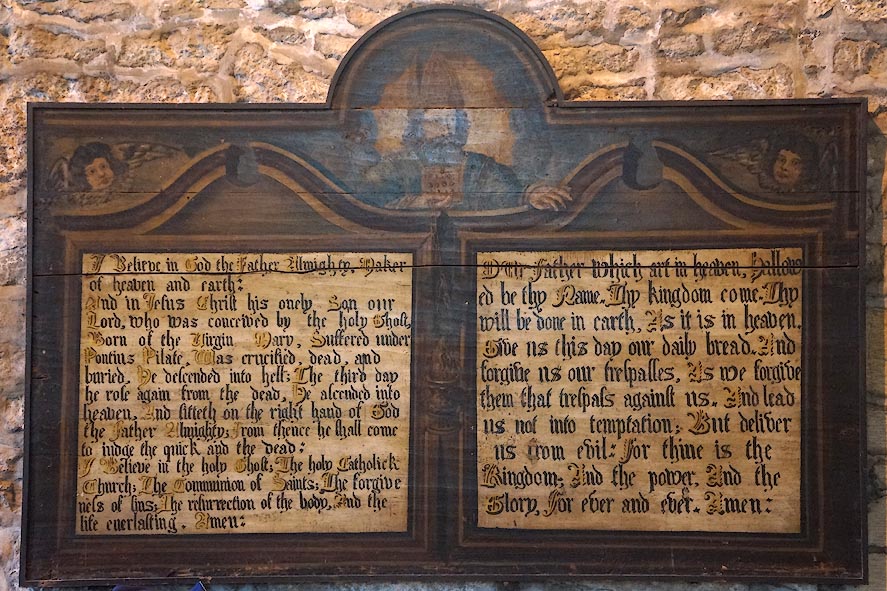 I Believe in God the Father Almighty, Maker
of heaven and earth:
And in Jesus Christ his onely Son our
Lord, who was conceived by the holy Ghost,
Born of the Virgin Mary, Suffered under
Pontius Pilate, Was crucified, dead, and
buried, He descended into hell; The third day
he rose again from the dead, He ascended into
heaven, And sitteth on the right hand of God
the Father Almighty; From thence he shall come
to iudge the quick and the dead:
I Believe in the holy Ghost; The holy Catholick
Church; The Communion of Saints; The forgive
ness of sins; The resurrection of the body, And the
life everlasting. Amen:
Our Father which art in heaven, Hallow
ed be thy Name. Thy kingdom come. Thy
will be done in earth, As it is in heaven.
Give us this day our daily bread. And
forgive us our trespasses, As we forgive
them that trespass against us. And lead
us not into temptation; But deliver
us from evil: For thine is the
Kingdom; And the power, And the
Glory, For ever and ever. Amen: